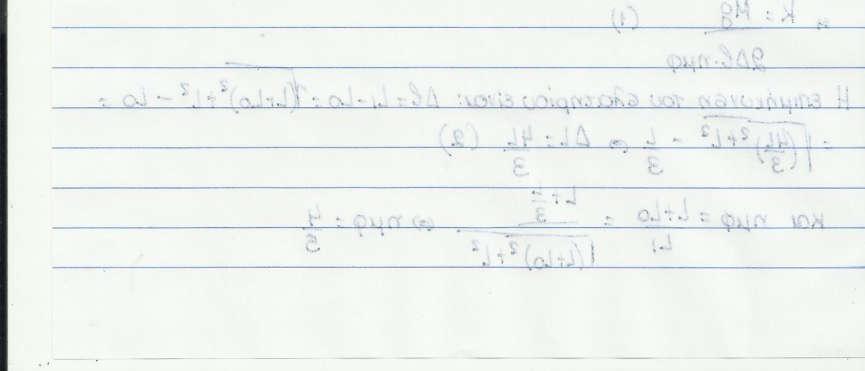 = K = Mg (1)
2Δl·ημφ
Η επιμήκυνση του ελατηρίου είναι: Δl = L1 - L0 = √(L+L0)²+L² - L0 =
= √(4L/3)²+L² - L/3 ⇔ ΔL = 4L/3 (2)
και ημφ = L+L0/L1 = L+L/3/√(L+L0)²+L² ⇔ ημφ = 4/5